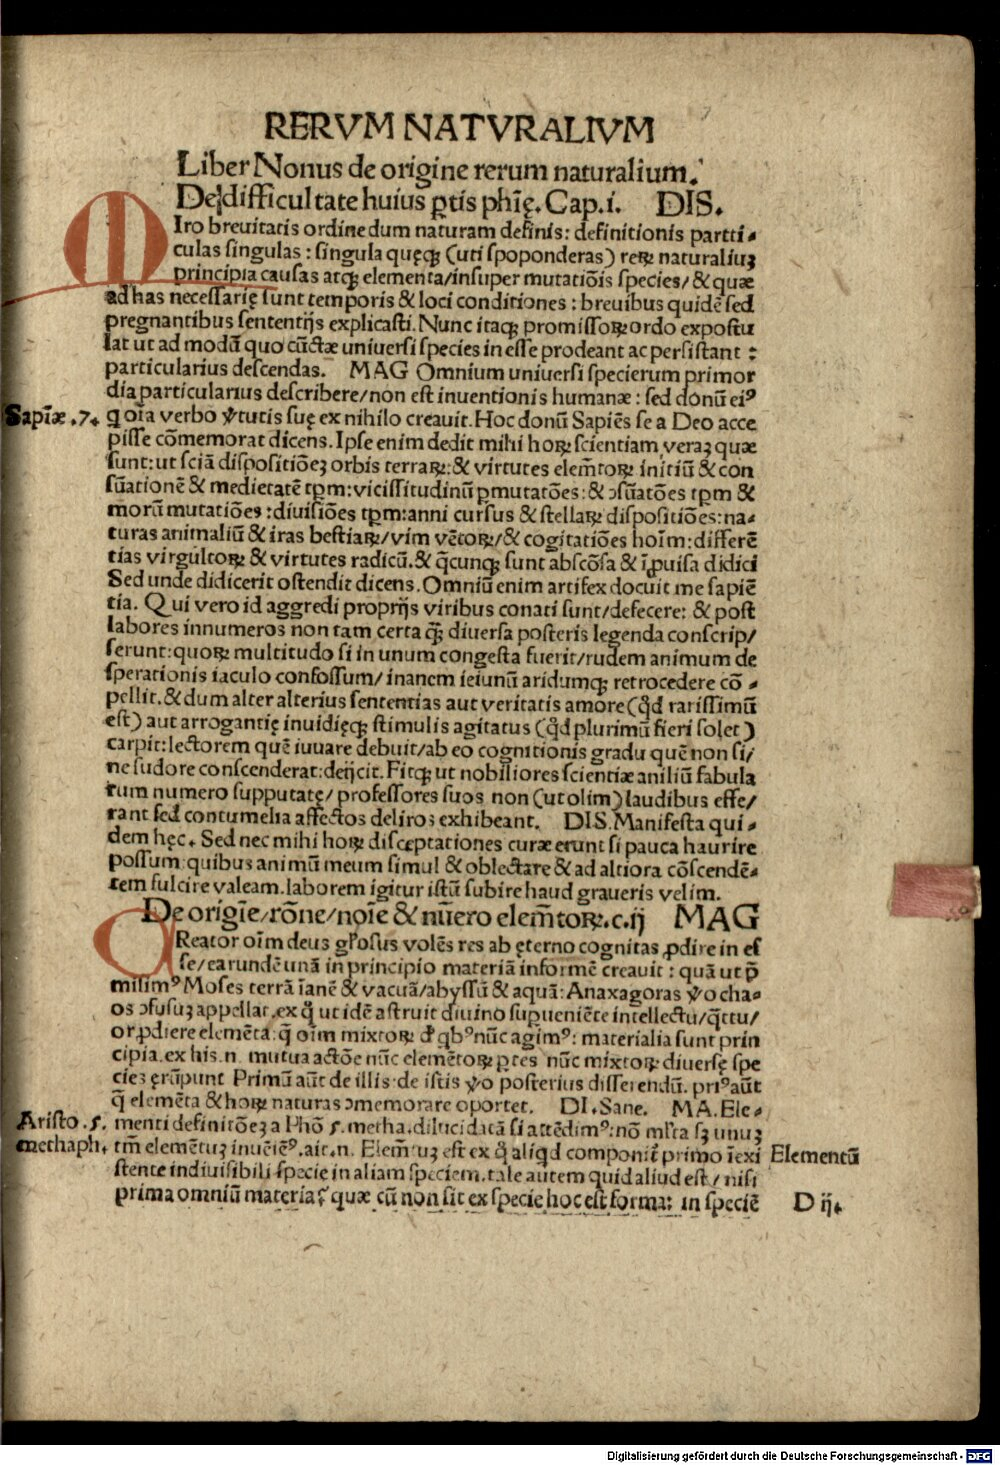 RERVM NATVRALIVM
Liber Nonus de origine rerum naturalium.
De difficultate huius ꝑtis phīę. Cap. i. DIS.
MIro breuitatis ordine dum naturam definis: definitionis partti⸗
culas singulas: singula quęqꝫ (uti spoponderas) reꝝ naturaliuꝫ
principia causas atqꝫ elementa/insuper mutatiōis species/& quæ
ad has necessarię sunt temporis & loci conditiones: breuibus quidē sed
pregnantibus sententijs explicasti. Nunc itaqꝫ promissoꝝ ordo expostu
lat ut ad modū quo cūctæ uniuersi species in esse prodeant ac persistant:
particularius descendas. MAG Omnium uniuersi specierum primor
dia particularius describere/non est inuentionis humanæ: sed donū eiꝰ
Sapiæ .7. q oīa verbo ꝟtutis suę ex nihilo creauit. Hoc donū Sapiēs se a Deo acce
pisse cōmemorat dicens. Ipse enim dedit mihi hoꝝ scientiam veraꝫ quæ
sunt: ut sciā dispositiōeꝫ orbis terraꝝ: & virtutes elem̄toꝝ initiū & con
sūationē & medietatē tꝑm: vicissitudinū ꝑmutatōes: & ꝯsūatōes tꝑm &
morū mutatiōes: diuisiōes tꝑm: anni cursus & stellaꝝ dispositiōes: na⸗
turas animaliū & iras bestiaꝝ/vim vētoꝝ/& cogitatiōes hoīm: differē
tias virgultoꝝ & virtutes radicū. & q̄cunqꝫ sunt abscōsa & īꝓuisa didici
Sed unde didicerit ostendit dicens. Omniū enim artifex docuit me sapiē
tia. Qui vero id aggredi proprijs viribus conati sunt/defecere: & post
labores innumeros non tam certa qꝫ̄ diuersa posteris legenda conscrip/
serunt: quoꝝ multitudo si in unum congesta fuerit/rudem animum de
sperationis iaculo confossum/inanem ieiunū aridumqꝫ retrocedere cō⸗
pellit. & dum alter alterius sententias aut veritatis amore (qd̄ rarissimū
est) aut arrogantię inuidięqꝫ stimulis agitatus (qd̄ plurimū fieri solet)
carpit: lectorem quē iuuare debuit/ab eo cognitionis gradu quē non si/
ne sudore conscenderat: deijcit. Fitqꝫ ut nobiliores scientiæ aniliū fabula
rum numero supputatę/professores suos non (ut olim) laudibus effe/
rant sed contumelia affectos deliros exhibeant. DIS. Manifesta qui⸗
dem hęc. Sed nec mihi hoꝝ disceptationes curæ erunt si pauca haurire
possum: quibus animū meum simul & oblectare & ad altiora cōscendē⸗
tem fulcire valeam. laborem igitur istū subire haud graueris velim.
De origīe/rōne/noīe & nūero elem̄toꝝ. c. ij MAG
CReator oīm deus gl'osus volēs res ab ęterno cognitas ꝓdire in es
se/earundē unā in principio materiā informē creauit: quā ut p̄
misimꝰ Moses terrā īanē & vacuā/abyssū & aquā: Anaxagoras ꝟo cha⸗
os ꝯfusuꝫ appellat. ex q̊ ut idē astruit diuino supueniēte intellectu/q̄ttu/
or ꝓdiere elemēta: q̄ oīm mixtoꝝ d' qbꝰ nūc agimꝰ: materialia sunt prin
cipia. ex his .n. mutua actōe nūc elemētoꝝ ꝑtes nūc mixtoꝝ diuersę spe
cies ęrūpunt Primū aūt de illis: de istis ꝟo posterius disserendū. priꝰ aūt
q̄ elemēta & hoꝝ naturas ꝯmemorare oportet. DI. Sane. MA. Ele⸗
Aristo. 5. menti definitōeꝫ a Phō 5. metha. dilucidatā si attēdimꝰ: nō ml'ta sꝫ unuꝫ
methaph. tm̄ elemētuꝫ inuēiēꝰ. ait .n. Elem̄tuꝫ est ex q̊ aliqd componit' primo īexi Elementū
stente indiuisibili specie in aliam speciem. tale autem quid aliud est/nisi
prima omniū materia? quæ cū non sit ex specie hoc est forma: in speciē D ij.
Digitalisierung gefördert durch die Deutsche Forschungsgemeinschaft - DFG